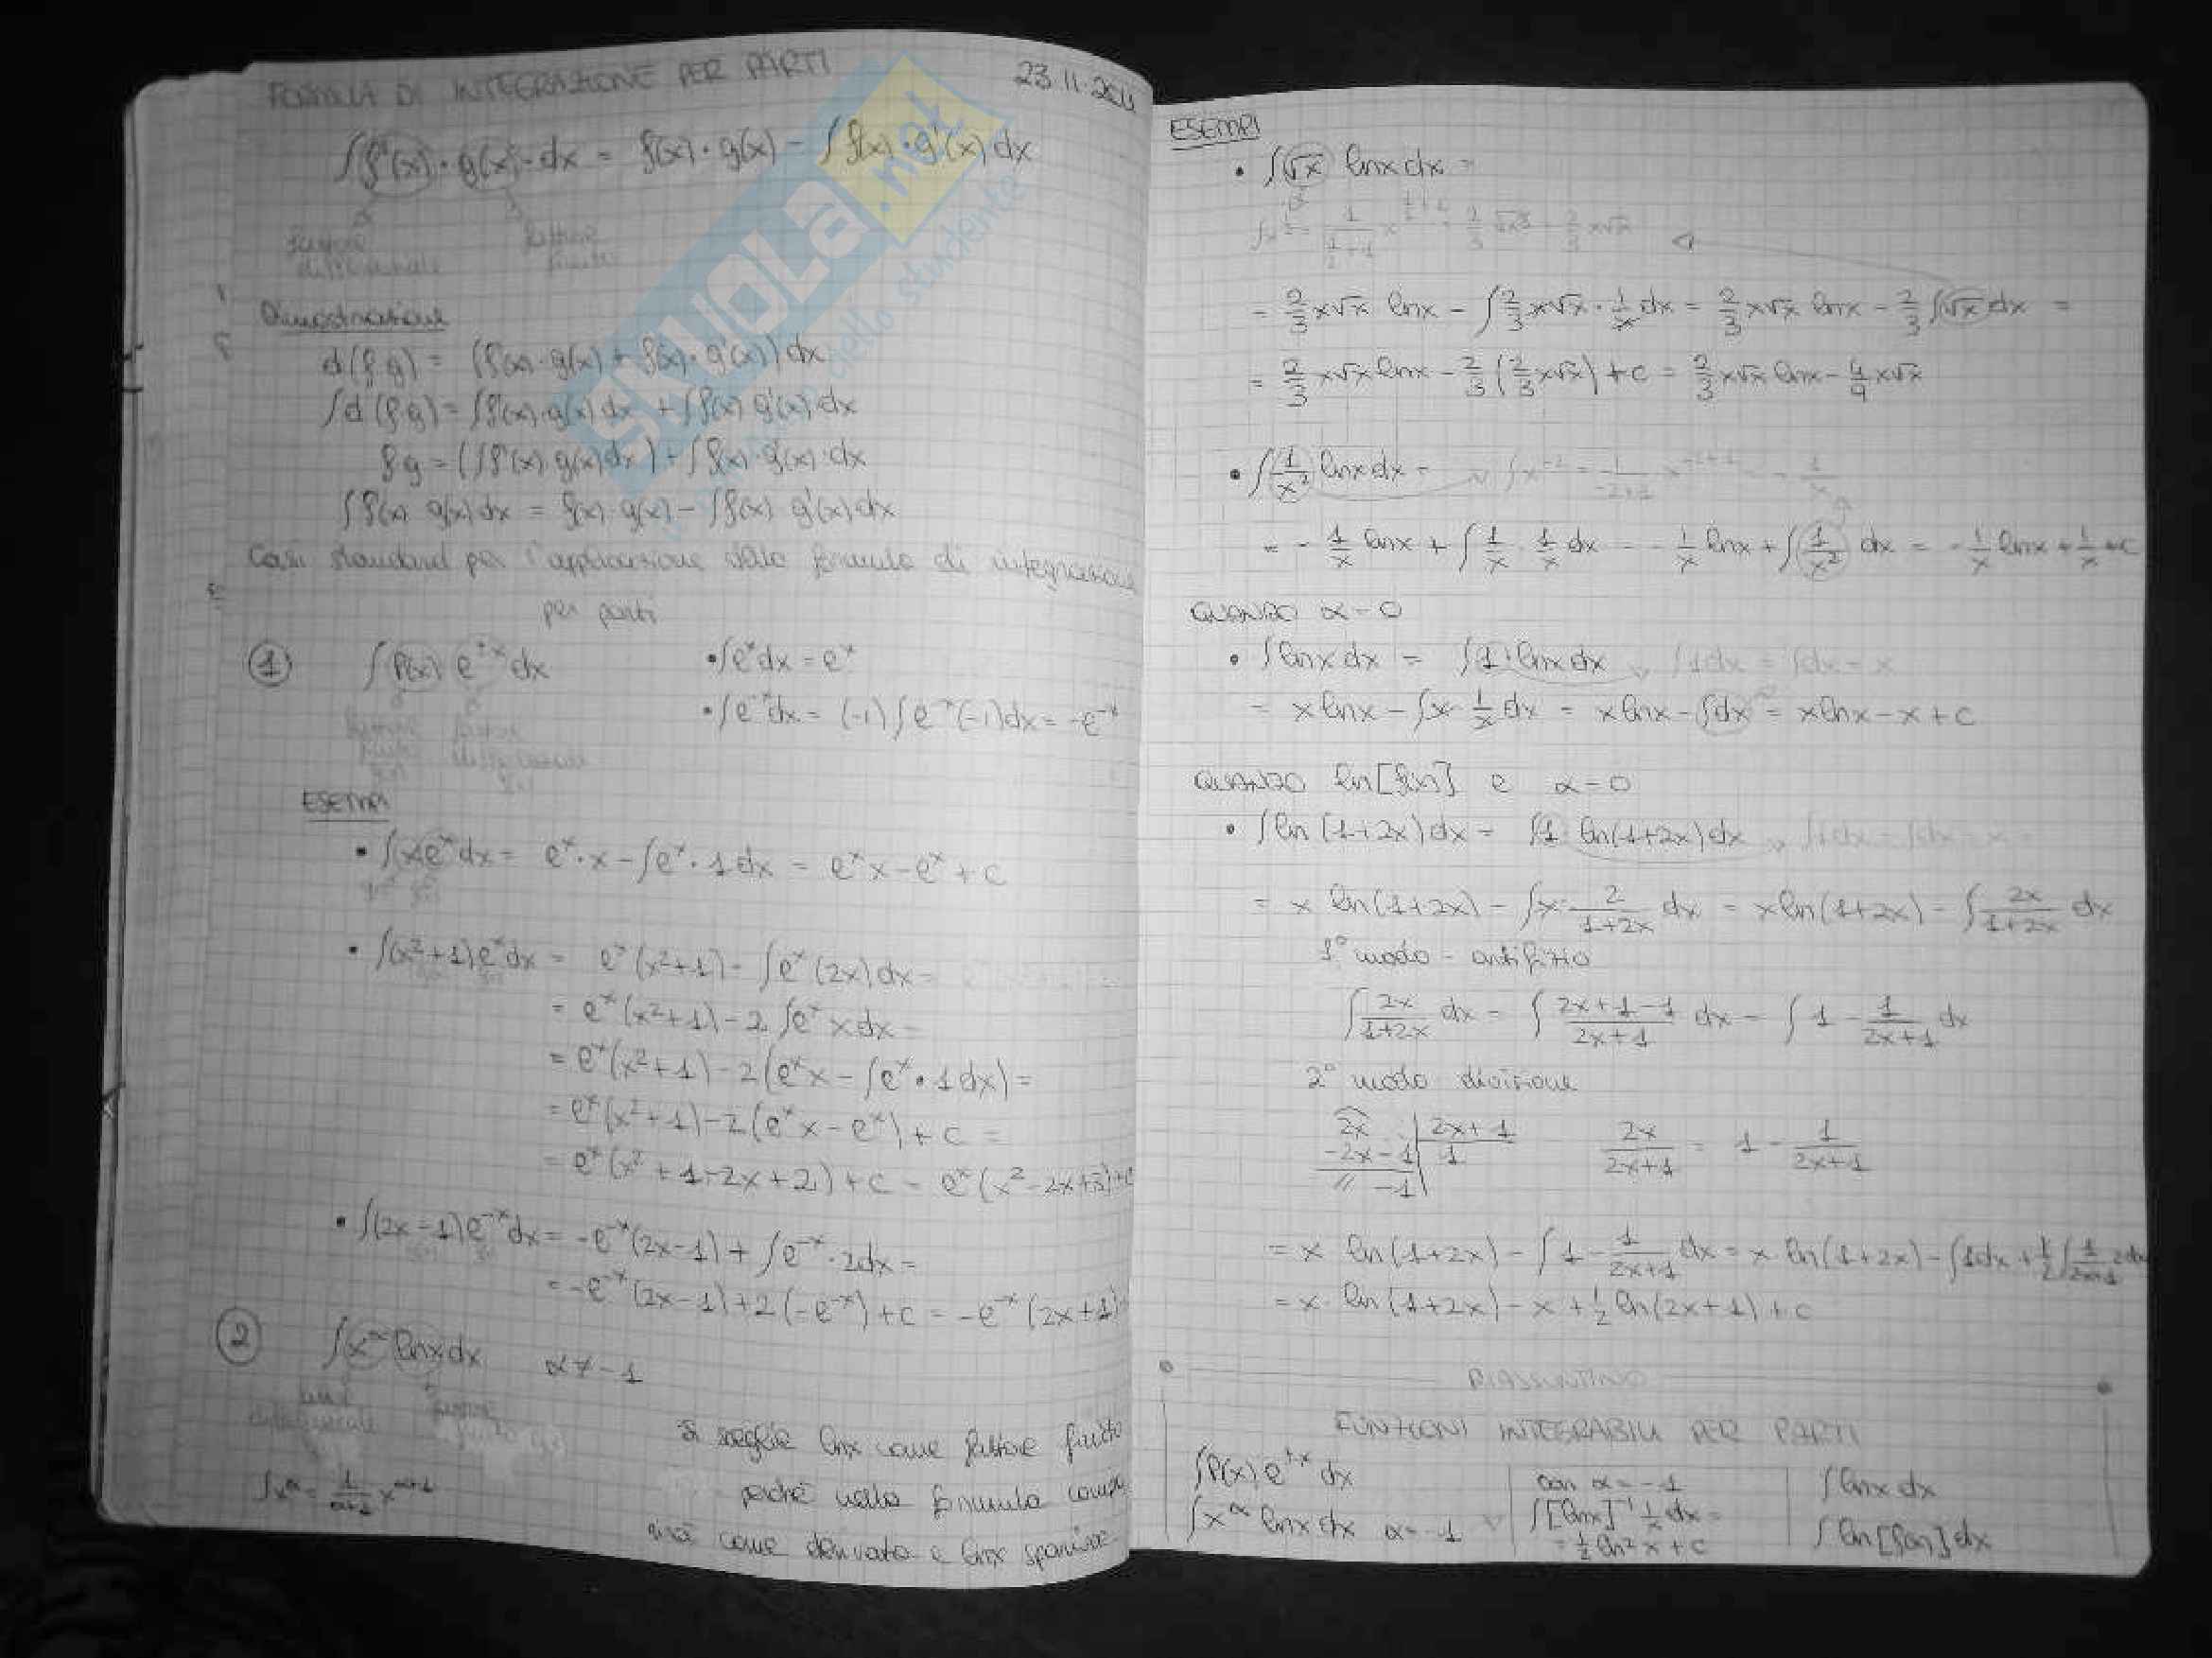 FORMULA DI INTEGRAZIONE PER PARTI
23.11.2011
∫f'(x)·g(x)·dx = f(x)·g(x) - ∫f(x)·g'(x)dx
fattore differenziale
fattore finito
Dimostrazione
d(f·g) = (f'(x)·g(x) + f(x)·g'(x))dx
∫d(f·g) = ∫f'(x)·g(x)dx + ∫f(x)·g'(x)·dx
f·g = (∫f'(x)·g(x)dx) + ∫f(x)·g'(x)·dx
∫f'(x)·g(x)dx = f(x)·g(x) - ∫f(x)·g'(x)dx
Casi standard per l'applicazione della formula di integrazione
per parti
① ∫P(x) e^±x dx
• ∫e^x dx = e^x
• ∫e^-x dx = (-1)∫e^-x(-1)dx = -e^-x
fattore finito
fattore differenziale
ESEMPI
• ∫xe^x dx = e^x·x - ∫e^x·1dx = e^x x - e^x + c
• ∫(x²+1)e^x dx = e^x(x²+1) - ∫e^x(2x)dx =
= e^x(x²+1) - 2∫e^x x dx =
= e^x(x²+1) - 2(e^x x - ∫e^x·1dx) =
= e^x(x²+1) - 2(e^x x - e^x) + c =
= e^x(x²+1-2x+2) + c = e^x(x²-2x+3)+c
• ∫(2x-1)e^-x dx = -e^-x(2x-1) + ∫e^-x·2dx =
= -e^-x(2x-1)+2(-e^-x)+c = -e^-x(2x+1)
② ∫x^α lnx dx α≠-1
∫x^α = 1/(α+1) x^(α+1)
si sceglie lnx come fattore finito
perché nella formula
come derivata e lnx sparisce
ESEMPI
• ∫√x lnx dx =
∫x^½ = 1/(½+1) x^(½+1) = 2/3 √x³ = 2/3 x√x
= 2/3 x√x lnx - ∫2/3 x√x · 1/x dx = 2/3 x√x lnx - 2/3 ∫√x dx =
= 2/3 x√x lnx - 2/3 (2/3 x√x) + c = 2/3 x√x lnx - 4/9 x√x
• ∫1/x² lnx dx = ∫x^-2 = 1/(-2+1) x^(-2+1) = - 1/x
= - 1/x lnx + ∫1/x · 1/x dx = - 1/x lnx + ∫1/x² dx = - 1/x lnx + 1/x + c
QUANDO α=0
• ∫lnx dx = ∫1·lnx dx ∫1dx = ∫dx = x
= x lnx - ∫x · 1/x dx = x lnx - ∫dx = x lnx - x + c
QUANDO ln[f(x)] e α=0
• ∫ln(1+2x)dx = ∫1 ln(1+2x)dx ∫1dx = ∫dx = x
= x ln(1+2x) - ∫x · 2/(1+2x) dx = x ln(1+2x) - ∫2x/(1+2x) dx
1° modo - artifizio
∫2x/(1+2x) dx = ∫(2x+1-1)/(2x+1) dx = ∫1 - 1/(2x+1) dx
2° modo divisione
2x | 2x+1
-2x-1 | 1
// -1
2x/(2x+1) = 1 - 1/(2x+1)
= x ln(1+2x) - ∫1 - 1/(2x+1) dx = x ln(1+2x) - ∫1dx + 1/2 ∫1/(2x+1) 2dx
= x·ln(1+2x) - x + 1/2 ln(2x+1) + c
RIASSUNTINO
FUNZIONI INTEGRABILI PER PARTI
∫P(x) e^±x dx
∫x^α lnx dx α=-1
con α=-1
∫[lnx]^1 1/x dx =
= 1/2 ln²x + c
∫lnx dx
∫ln[f(x)]dx
SKUOLA.net